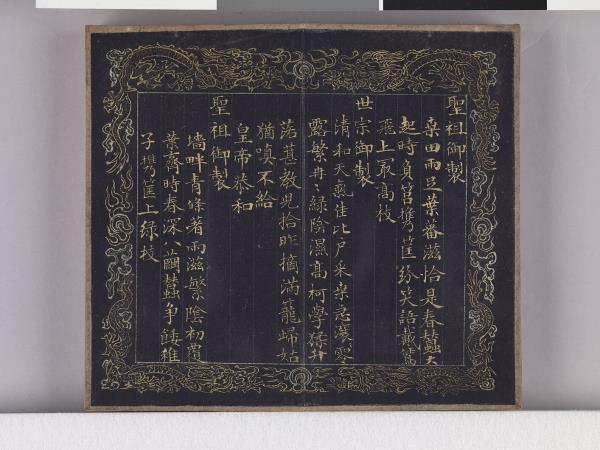 聖祖御製
桑田雨足葉蕃滋恰是春蠶大
起時負筥携筐紛笑語戴鵀
飛上最高枝
世宗御製
清和天氣佳比戶采桑急瀼〻零
露繁冉〻綠陰濕高柯學猱升
落葚教兒拾昨摘滿籠歸姑
猶嗔不給
皇帝恭和
聖祖御製
墻畔青條著雨滋繁陰初覆
葉齊時春深八繭蠶爭餧稚
子携筐上綠枝